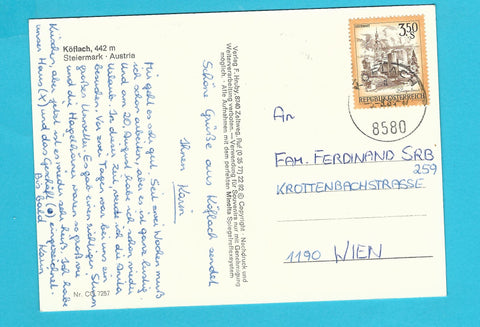 Köflach, 442 m
Steiermark · Austria
Schöne Grüße aus Köflach sendet
Ihnen Karin
Mir geht es sehr gut. Seit zwei Wochen muß
ich schon arbeiten, aber es ist ganz lustig.
Und am 20. August habe ich schon wieder
Urlaub. In dieser Zeit werde ich die Anita
besuchen. Vor zwei Tagen war bei uns ein
großes Unwetter. Es gab einen richtigen Sturm
und die Hagelkörner waren so groß wie
Kirschen, aber jetzt ist es wieder sehr heiß. Ich habe
unser Haus (X) und das Geschäft (●) eingezeichnet.
Bis bald Karin
Nr. CG 7287
Verlag F. Huby, 8740 Zeltweg, Ruf (0 35 77) 22 92 © Copyright · Nachdruck und
Weiterverarbeitung verboten. – Verwendung für Souvenirs nur mit Genehmigung
möglich. · Alle Aufnahmen mit dem perfekten Mamiya Spiegelreflexsystem
3.50
S
REPUBLIK ÖSTERREICH
8580
An
FAM. FERDINAND SRB
KROTTENBACHSTRASSE 259
1190 WIEN